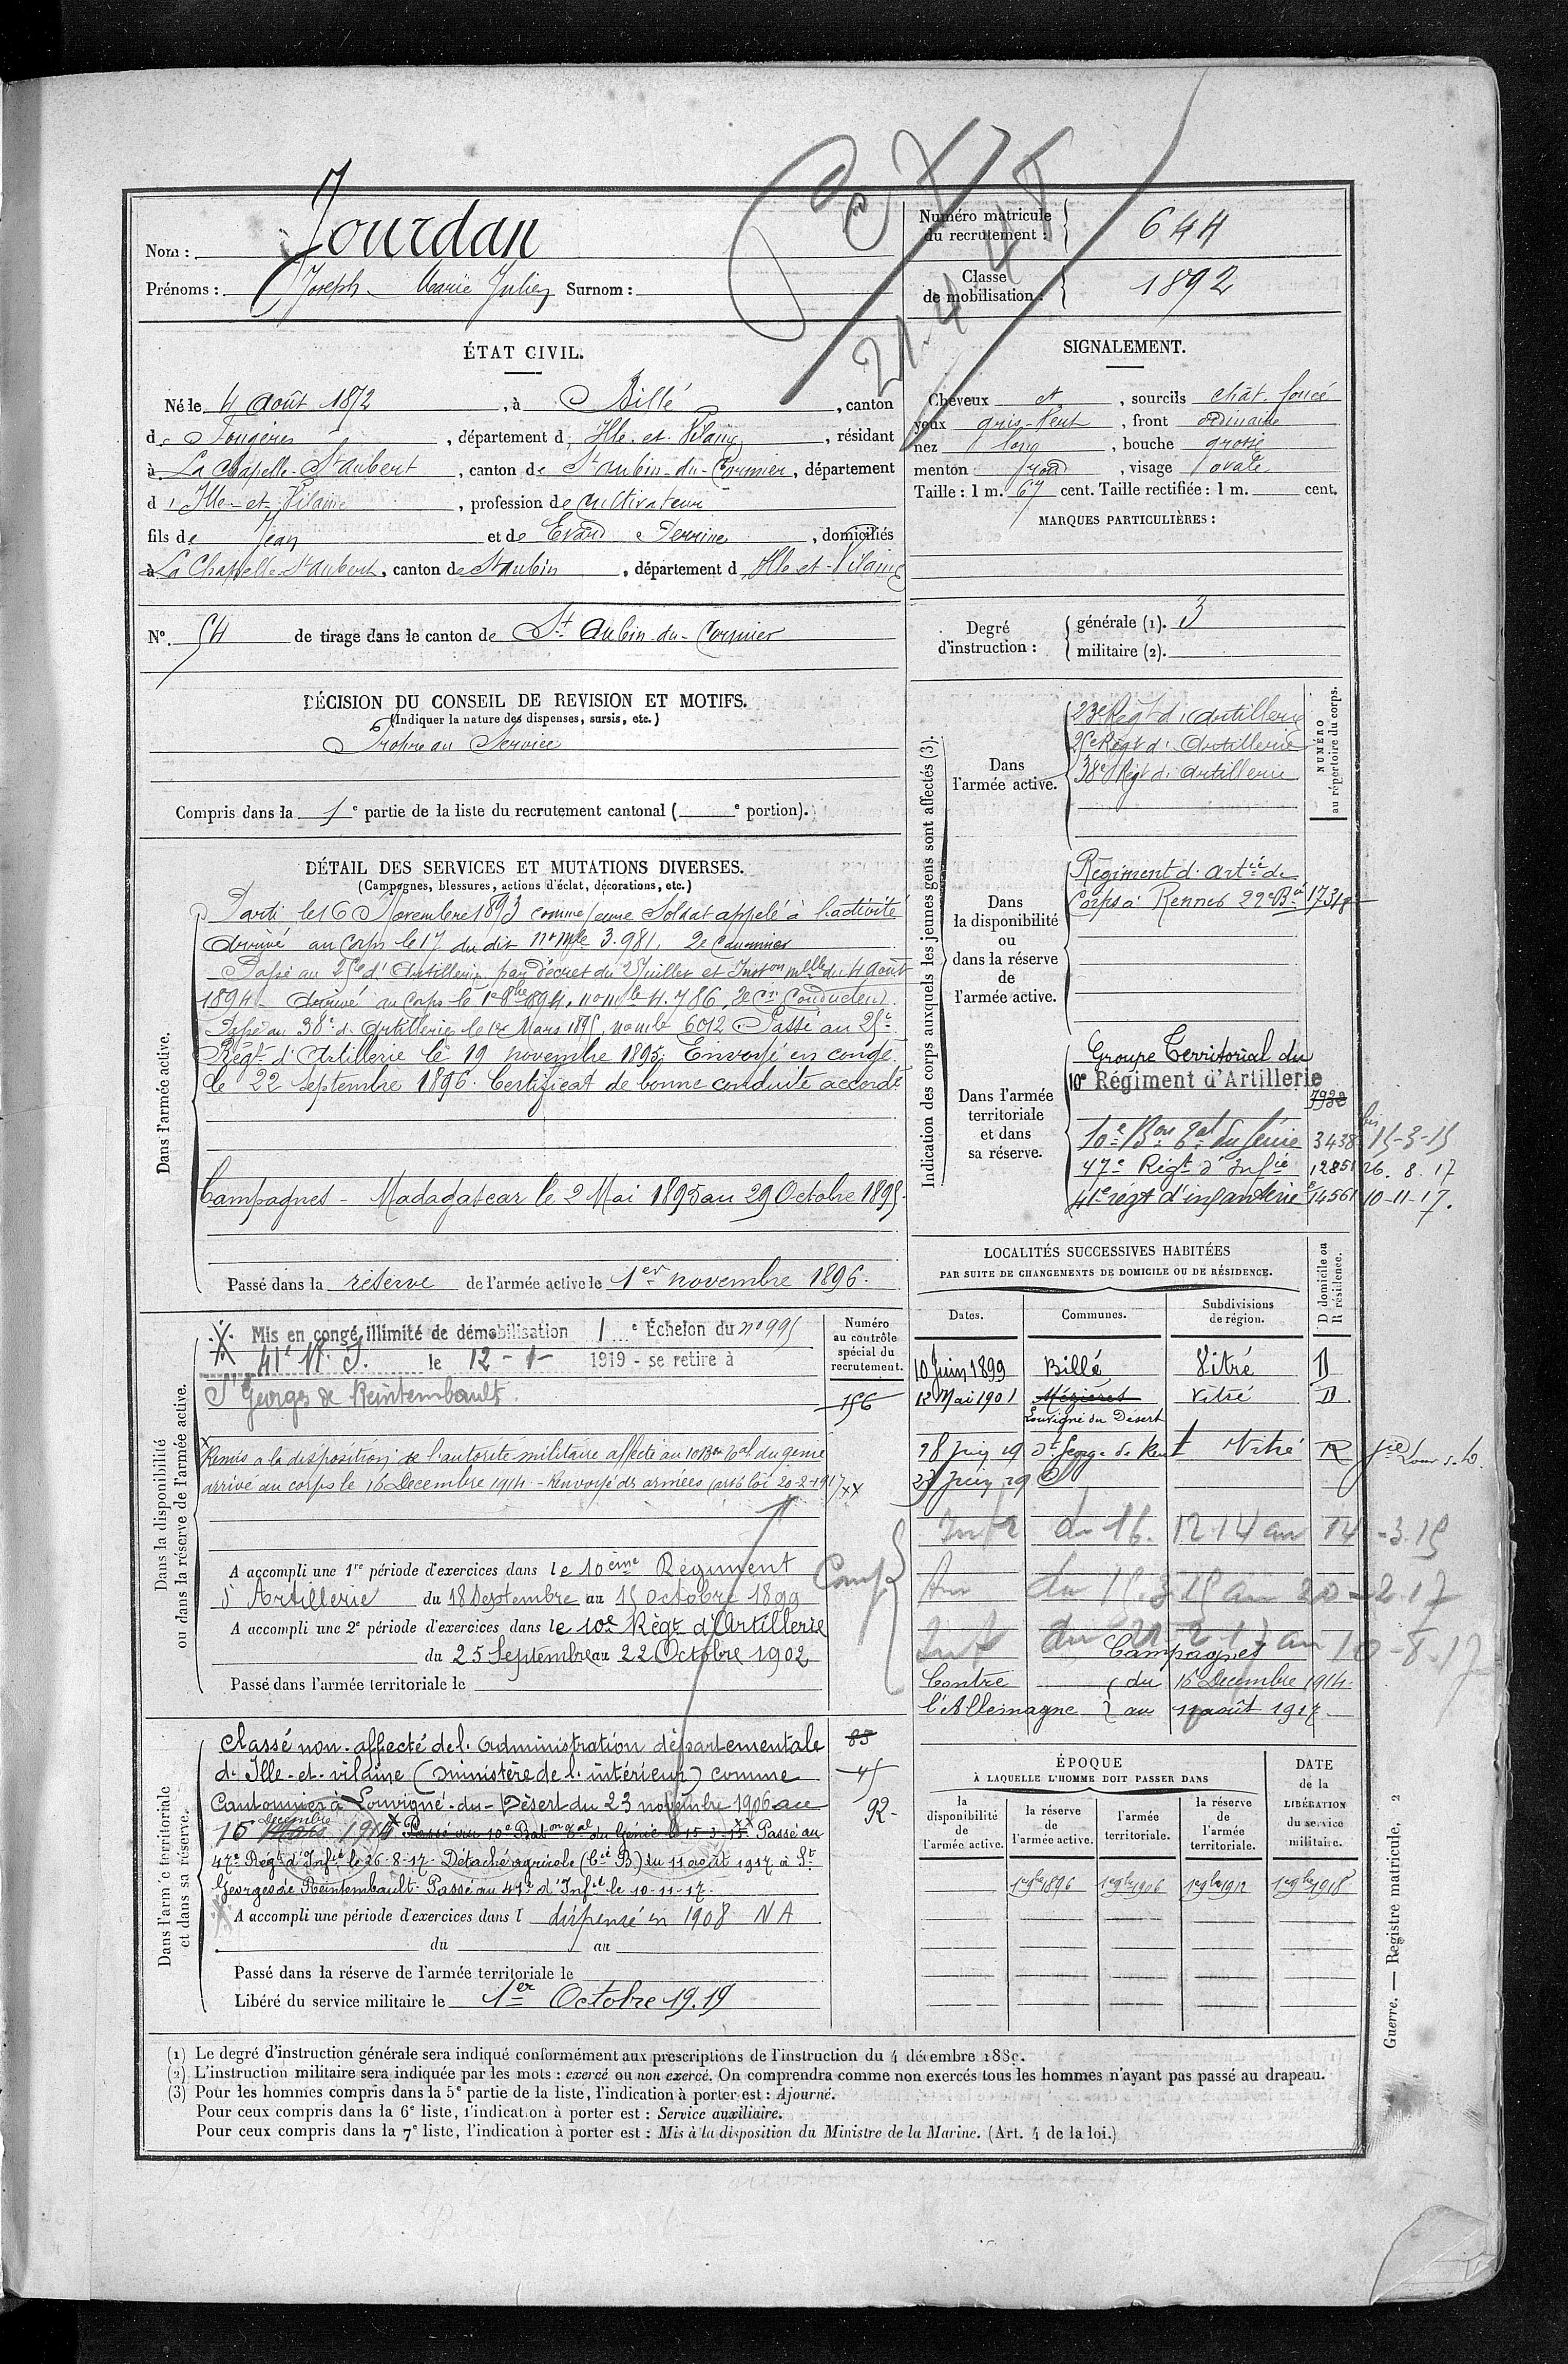 Nom : Jourdan
Prénoms : Joseph Marie Julien Surnom :
Numéro matricule du recrutement : 644
Classe de mobilisation : 1892
ÉTAT CIVIL.
Né le 4 Août 1872, à Billé, canton
de Fougères, département d'Ille-et-Vilaine, résidant
à La Chapelle-St Aubert, canton de St Aubin-du-Cormier, département
d'Ille-et-Vilaine, profession de cultivateur
fils de Jean et de Erard Perrine, domiciliés
à La Chapelle-St Aubert, canton de St Aubin, département d'Ille-et-Vilaine
N° 54 de tirage dans le canton de St Aubin-du-Cormier
SIGNALEMENT.
Cheveux et, sourcils chât. foncé
yeux gris-vert, front ordinaire
nez long, bouche grosse
menton rond, visage ovale
Taille : 1 m. 67 cent. Taille rectifiée : 1 m. cent.
MARQUES PARTICULIÈRES :
Degré d'instruction : générale (1). 3
militaire (2).
DÉCISION DU CONSEIL DE REVISION ET MOTIFS.
(Indiquer la nature des dispenses, sursis, etc.)
Propre au Service
Compris dans la 1e partie de la liste du recrutement cantonal ( e portion).
DÉTAIL DES SERVICES ET MUTATIONS DIVERSES.
(Campagnes, blessures, actions d'éclat, décorations, etc.)
Dans l'armée active.
Parti le 16 Novembre 1893 comme jeune Soldat appelé à l'activité
Arrivé au Corps le 17 du dit n° mle 3.981. 2e Canonnier
Passé au 25e d'Artillerie par décret du 2 Juillet et Inston mlle du 4 Août
1894. Arrivé au Corps le 1er 8bre 1894, no mle 4.786, 2e Cr Conducteur.
Passé au 38e d'Artillerie le 1er Mars 1895, no mle 6012 Passé au 25e
Régt d'Artillerie le 19 novembre 1895. Envoyé en congé
le 22 septembre 1896. Certificat de bonne conduite accordé
Campagnes - Madagascar le 2 Mai 1895 au 29 Octobre 1895.
Passé dans la réserve de l'armée active le 1er novembre 1896.
Indication des corps auxquels les jeunes gens sont affectés (3).
NUMÉRO au répertoire du corps.
Dans l'armée active.
23e Régt d'Artillerie
25e Régt d'Artillerie
38e Régt d'Artillerie
Dans la disponibilité ou dans la réserve de l'armée active.
Régiment d'Artie de
Corps à Rennes 22e Bie 17318
Dans l'armée territoriale et dans sa réserve.
Groupe Territorial du
10e Régiment d'Artillerie
10e Bon Tal du Génie 3438 bis 15-3-15
47e Régt d'Infie 12851 26.8.17
41e régt d'infanterie 14561 10-11-17.
LOCALITÉS SUCCESSIVES HABITÉES
PAR SUITE DE CHANGEMENTS DE DOMICILE OU DE RÉSIDENCE.
Dates. Communes. Subdivisions de région. D domicile ou R résidence.
10 Juin 1899 Billé Vitré D
12 Mai 1901 Mézières Vitré D
Louvigné du Désert
28 Juin 19 St George de Reint Vitré R
Int du 16.12 14 au 14-3.15
Arm du 15.3 15 au 20-2.17
Int du 21 2 17 au 10-8.17
Camp
Campagnes
Contre l'Allemagne du 16 Décembre 1914
au 11 août 1917
Dans la disponibilité ou dans la réserve de l'armée active.
Numéro au contrôle spécial du recrutement.
Mis en congé illimité de démobilisation 1e Échelon du no 995
41e R. I. le 12-1-1919 - se retire à
St Georges de Reintembault
156
Remis a la disposition de l'autorité militaire affecté au 10 Bon Tal. du génie
arrivé au corps le 16 Decembre 1914 - Renvoyé des armées loi 20-2-1917 xx
A accompli une 1re période d'exercices dans le 10ème Régiment
d'Artillerie du 18 Septembre au 15 octobre 1899
A accompli une 2e période d'exercices dans le 10e Régt d'Artillerie
du 25 Septembre au 22 Octobre 1902
Passé dans l'armée territoriale le
Dans l'armée territoriale et dans sa réserve.
Classé non-affecté de l'Administration départementale 85
d'Ille-et-vilaine (ministère de l'intérieur) comme 45
Cantonnier à Louvigné-du-Désert du 23 novembre 1906 au 92
16 Décembre 1914 Passé au 10e Baton Tal du Génie le 15-3-15. Passé au
47e Régt d'Infie le 26-8-17. Détaché agricole (Cie B) du 11 août 1917 à St
Georges de Reintembault. Passé au 41e d'Infie le 10-11-17.
A accompli une période d'exercices dans l dispensé en 1908 NA
du au
Passé dans la réserve de l'armée territoriale le
Libéré du service militaire le 1er Octobre 1919
ÉPOQUE
À LAQUELLE L'HOMME DOIT PASSER DANS
la disponibilité de l'armée active.
la réserve de l'armée active.
l'armée territoriale.
la réserve de l'armée territoriale.
DATE de la LIBÉRATION du service militaire.
1er 9bre 1896 1er 9bre 1906 1er 9bre 1912 1er 9bre 1918
(1) Le degré d'instruction générale sera indiqué conformément aux prescriptions de l'instruction du 4 décembre 1889.
(2) L'instruction militaire sera indiquée par les mots : exercé ou non exercé. On comprendra comme non exercés tous les hommes n'ayant pas passé au drapeau.
(3) Pour les hommes compris dans la 5e partie de la liste, l'indication à porter est : Ajourné.
Pour ceux compris dans la 6e liste, l'indication à porter est : Service auxiliaire.
Pour ceux compris dans la 7e liste, l'indication à porter est : Mis à la disposition du Ministre de la Marine. (Art. 4 de la loi.)
Guerre. — Registre matricule, 2